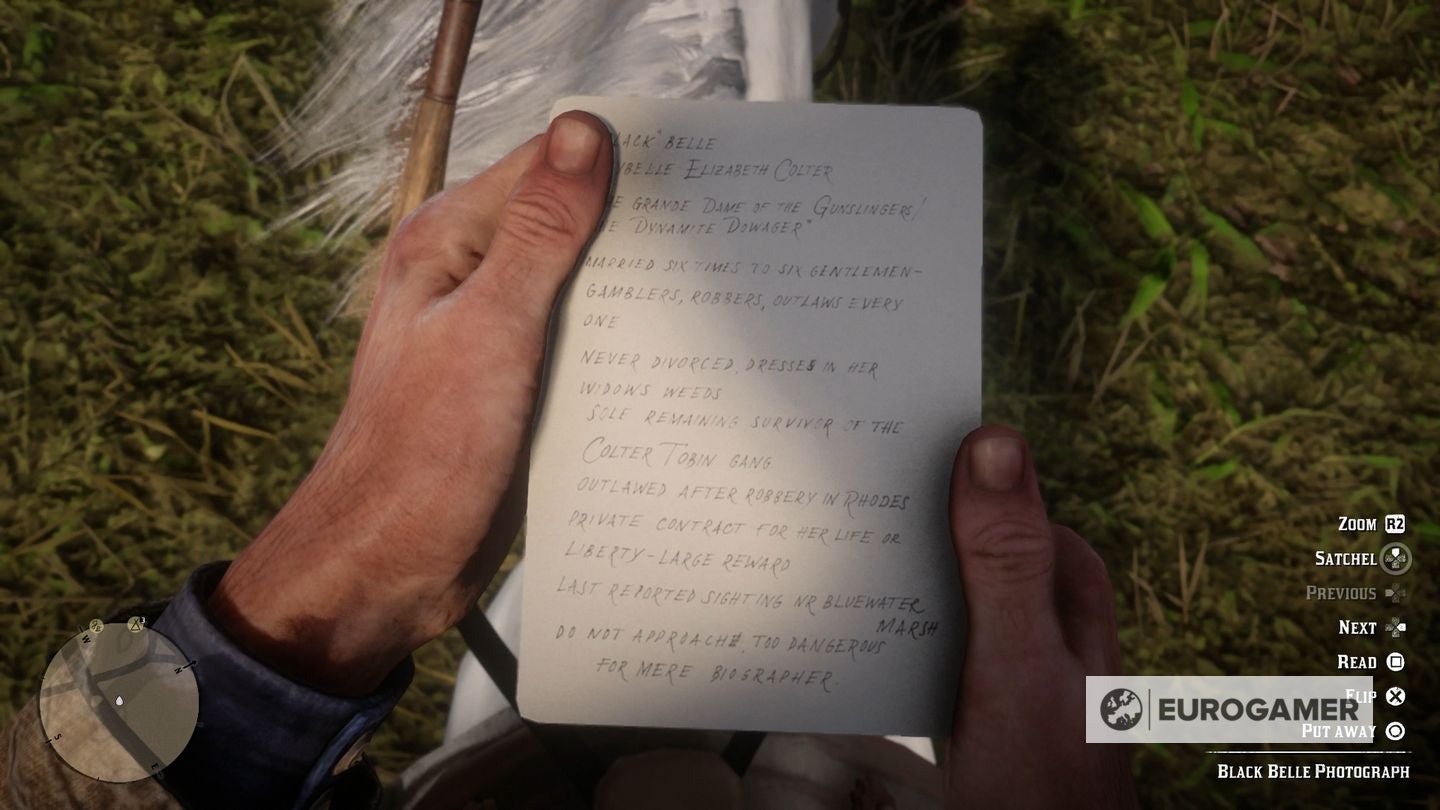 LACK" BELLE
BELLE ELIZABETH COLTER
E GRANDE DAME OF THE GUNSLINGERS/
E DYNAMITE DOWAGER"
MARRIED SIX TIMES TO SIX GENTLEMEN-
GAMBLERS, ROBBERS, OUTLAWS EVERY
ONE
NEVER DIVORCED, DRESSES IN HER
WIDOWS WEEDS
SOLE REMAINING SURVIVOR OF THE
COLTER TOBIN GANG
OUTLAWED AFTER ROBBERY IN RHODES
PRIVATE CONTRACT FOR HER LIFE OR
LIBERTY-LARGE REWARD
LAST REPORTED SIGHTING NR BLUEWATER
MARSH
DO NOT APPROACH, TOO DANGEROUS
FOR MERE BIOGRAPHER.
W
N
S
E
ZOOM R2
SATCHEL
PREVIOUS
NEXT
READ
FLIP
EUROGAMER
PUT AWAY
BLACK BELLE PHOTOGRAPH